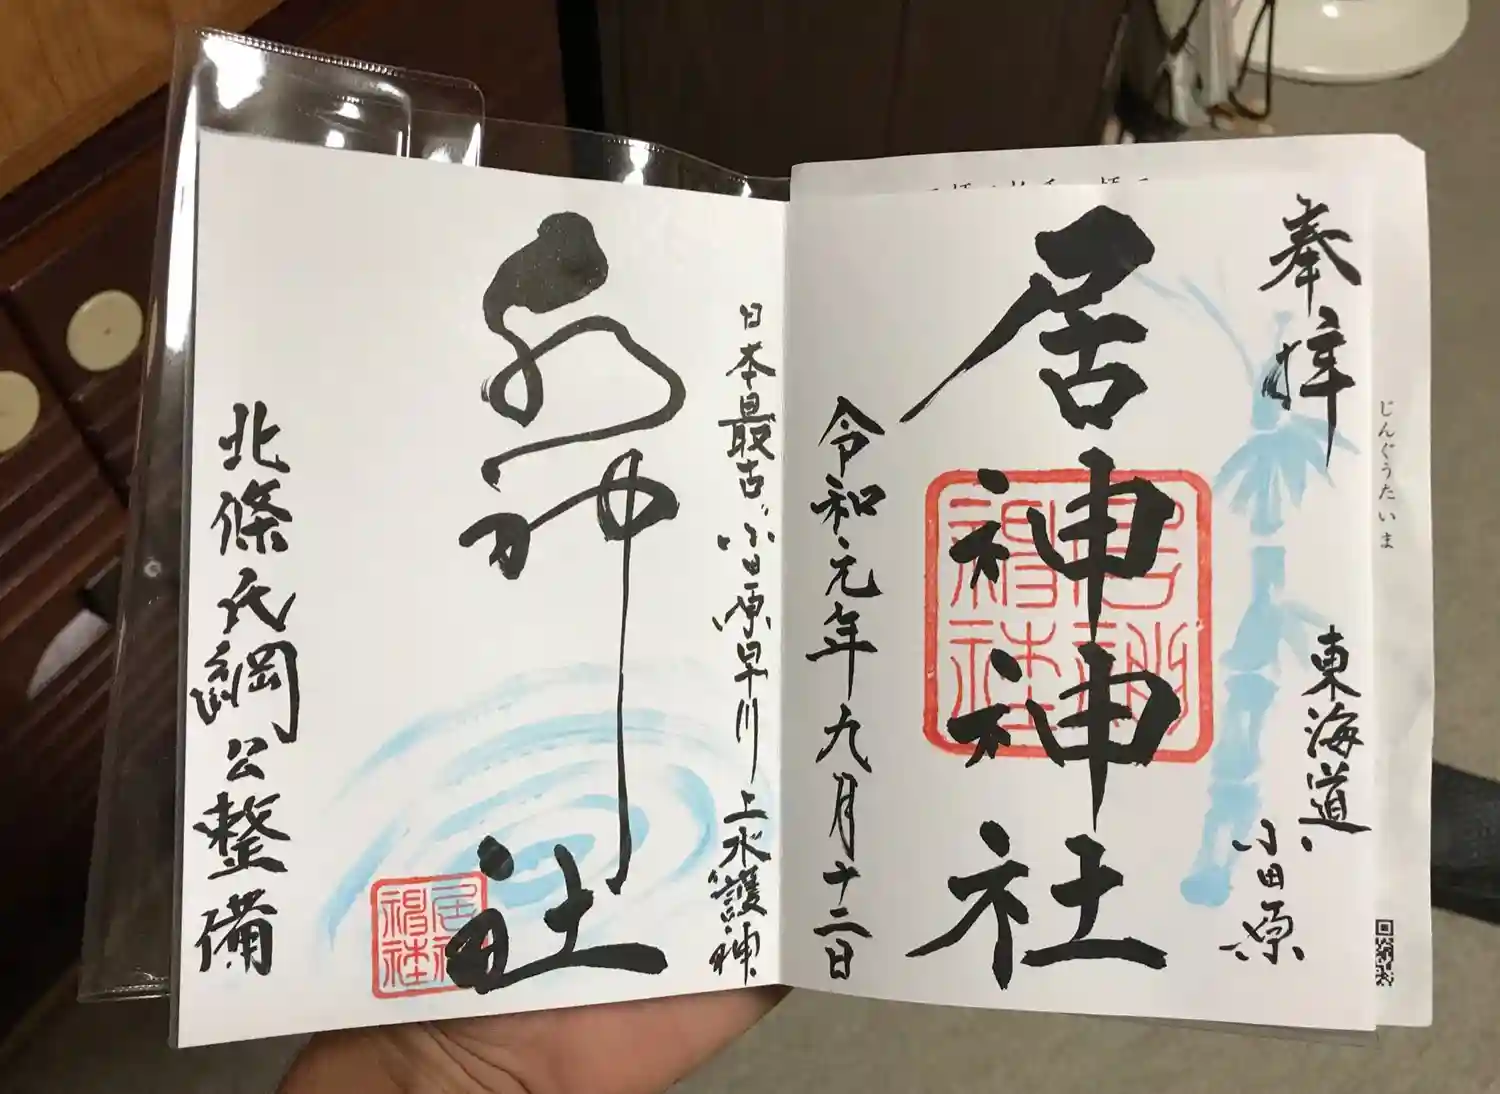 奉拝
東海道
小田原
居神神社
令和元年九月十二日
日本最古、小田原早川上水護神
水神社
北條氏綱公整備
居神
神社
じんぐうたいま